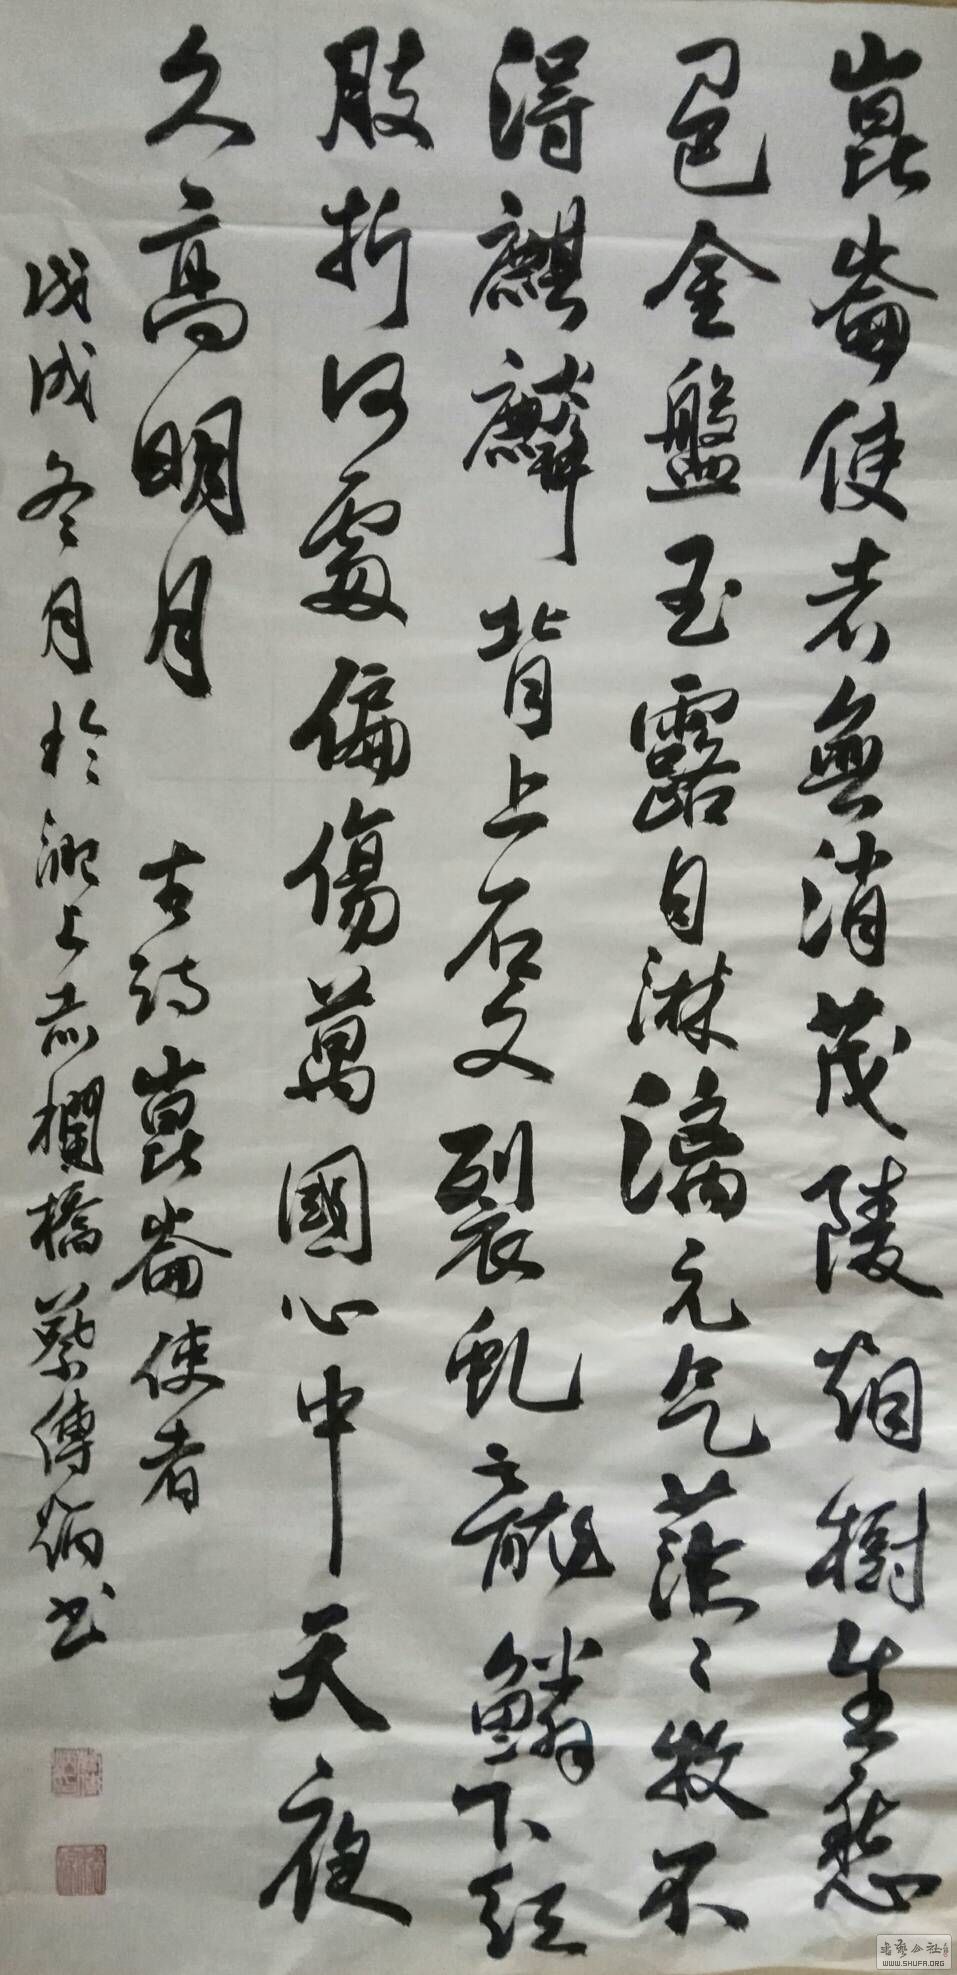 崑崙使者無消茂陵烟樹生愁
色金盤玉露自淋漓元气茫〻收不
得麒麟背上石文裂虬龍鱗下红
肢折何處偏傷萬國心中天夜
久高明月 古詩崑崙使者
戊戌冬月於淝上赤欄橋蔡傳炳书
书艺公社
WWW.SHUFA.ORG